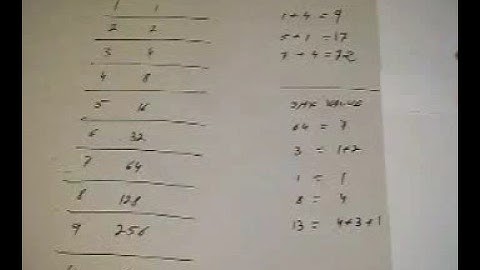 1 1
2 2
3 4
4 8
5 16
6 32
7 64
8 128
9 256
1+4=9
5+1=17
7+4=72
VALUE
64 = 7
3 = 1+2
1 = 1
8 = 4
13 = 4+3+1